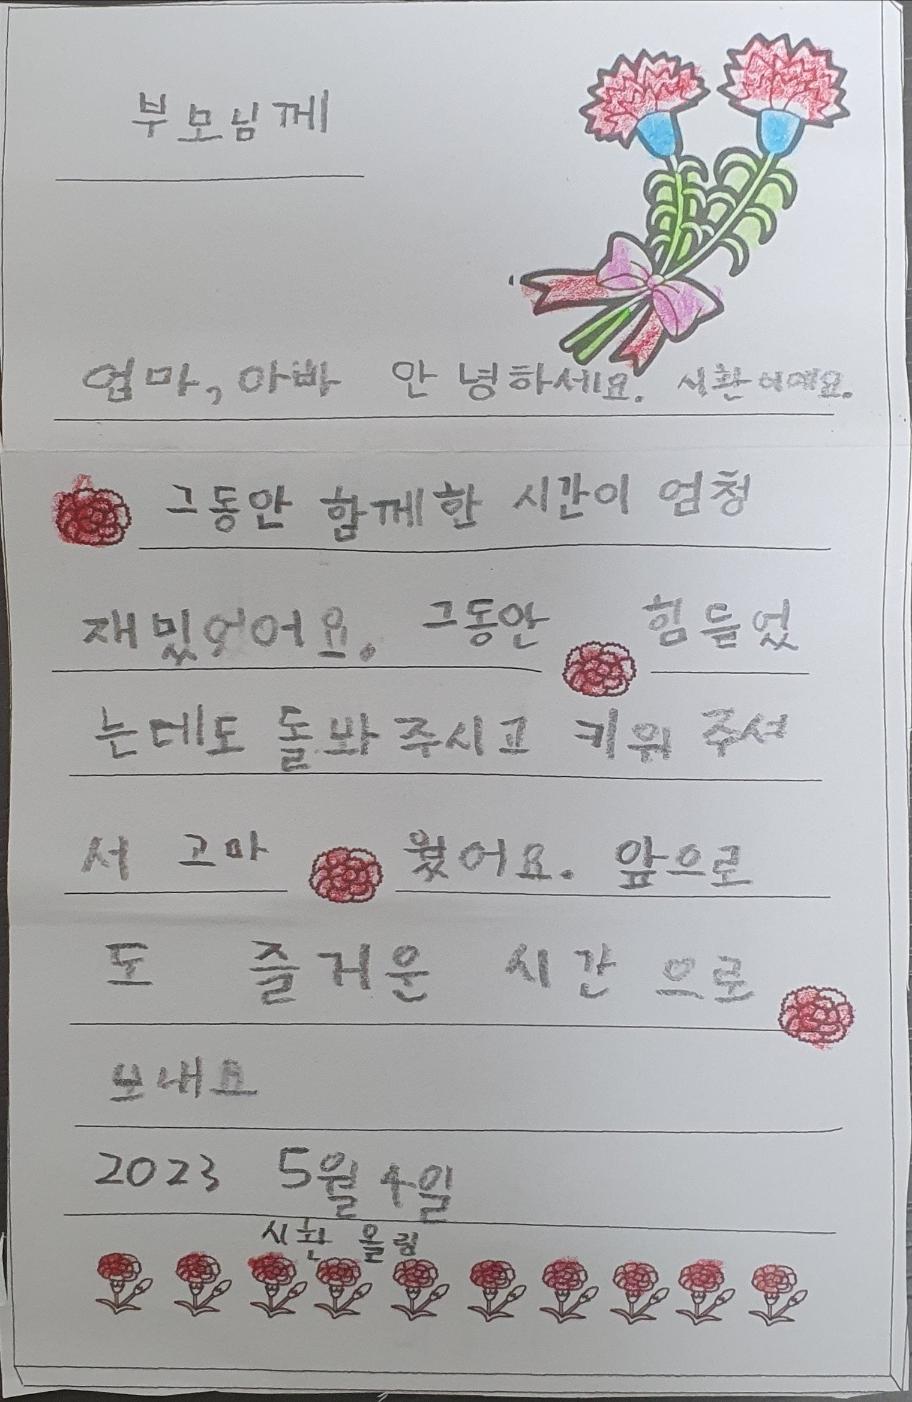 부모님께
엄마, 아빠 안녕하세요. 시환이예요.
그동안 함께한 시간이 엄청
재밌었어요. 그동안 힘들었
는데도 돌봐 주시고 키워 주셔
서 고마웠어요. 앞으로
도 즐거운 시간으로
보내요
2023 5월 4일
시환 올림